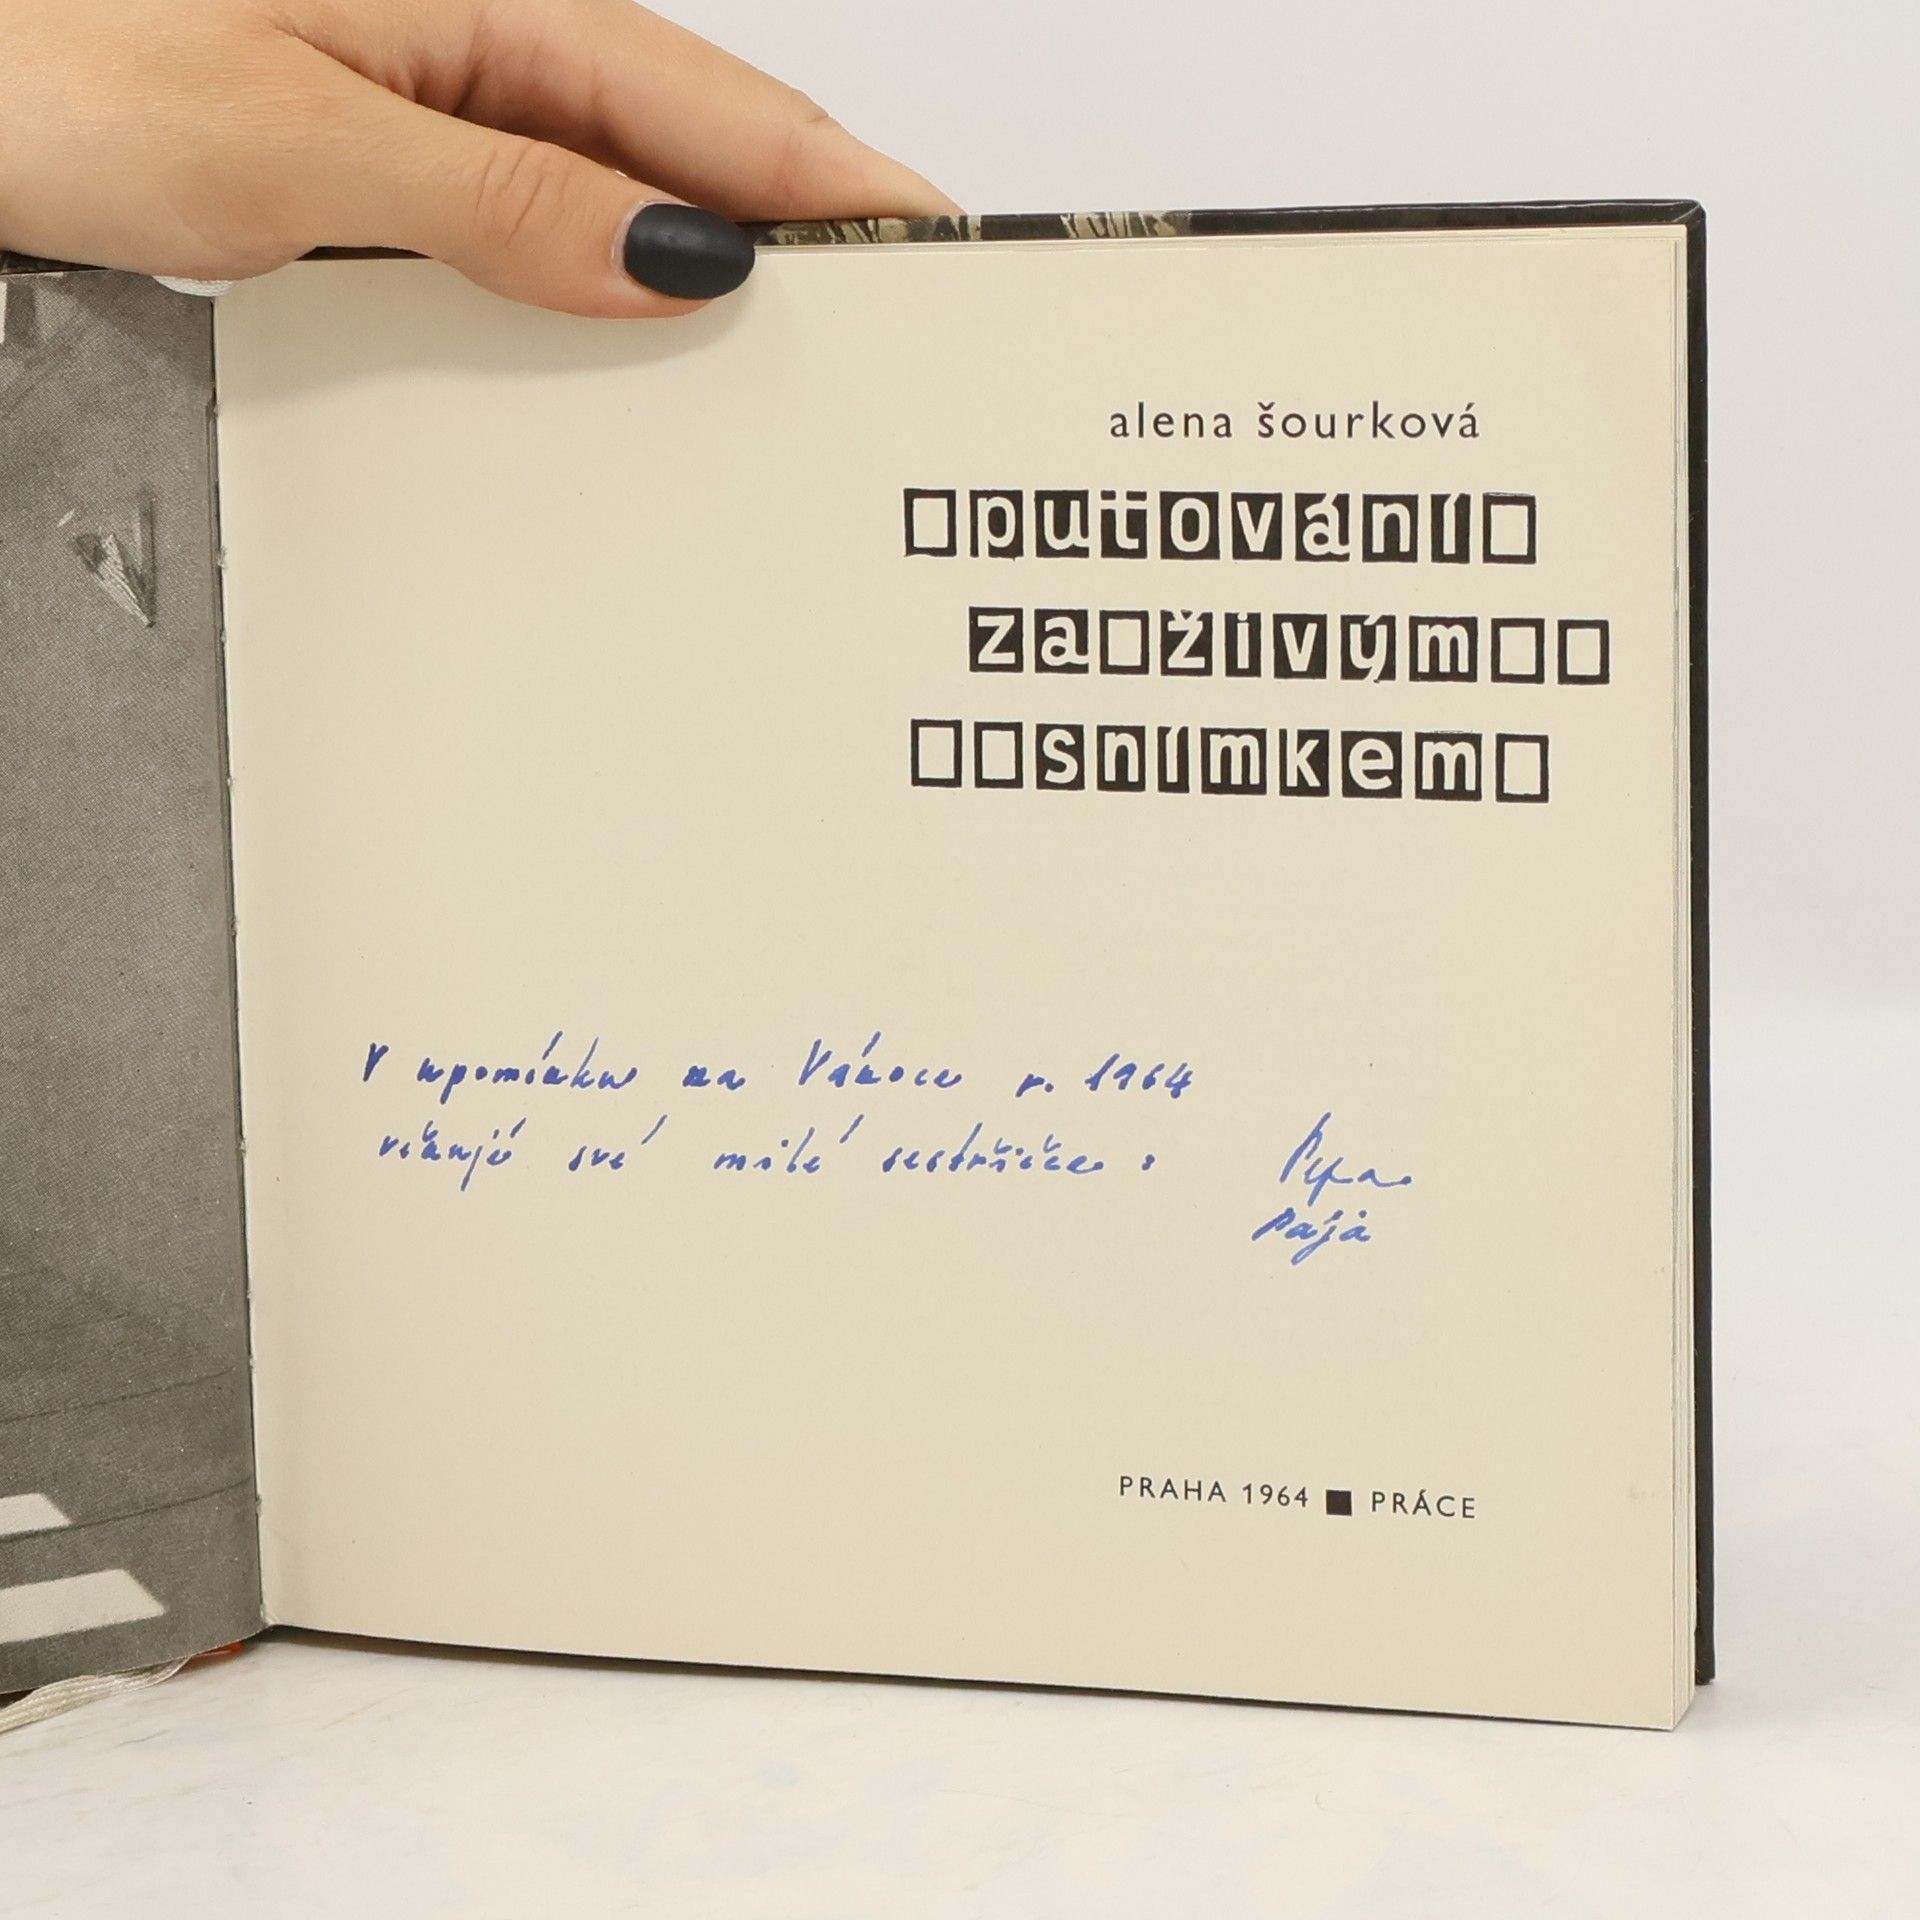 alena šourková
putování
za živým
snímkem
V upomínku na Vánoce r. 1964
věnují své milé sestřičce :
Pepa
Pája
PRAHA 1964 ■ PRÁCE